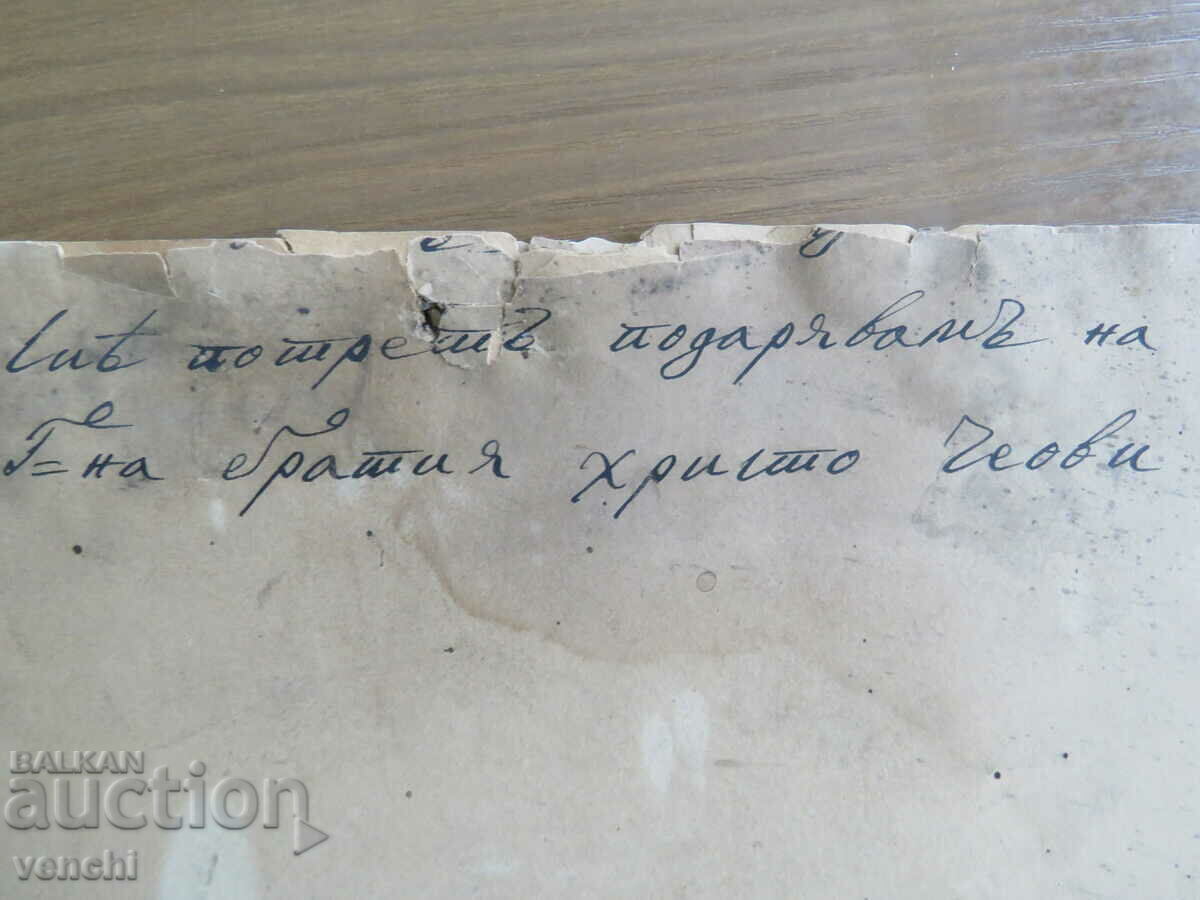 потретъ подарявамъ на
Г=на братия христо Чеови
BALKAN
auction
venchi